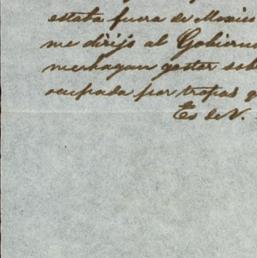 estaba fuera de Mexico
me dirijo al Gobierno
me hagan gastar sob
ocupada por tropas q
Es de V.